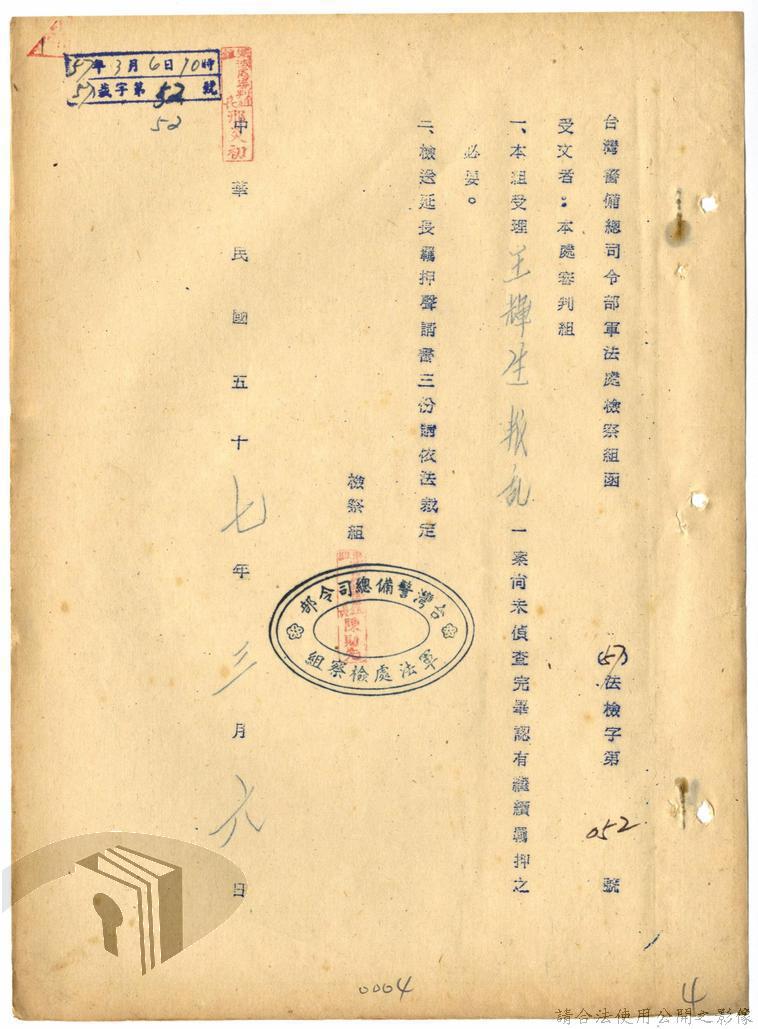 台灣警備總司令部軍法處檢察組函
(57)法檢字第052號
受文者：本處審判組
一、本組受理王輝生叛乱一案尚未偵查完畢認有繼續羈押之
必要。
二、檢送延長羈押聲請書三份請依法裁定
檢察組
台灣警備總司令部
軍法處檢察組
中華民國五十七年三月六日
57年3月6日10時
字第52號
52
0004
4
請合法使用公開之影像